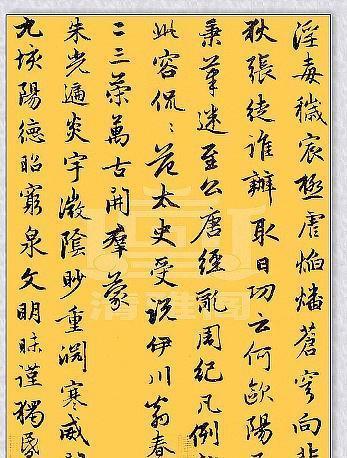 淫毒穢宸極虐焰燔蒼穹向非
狄張徒誰辦取日功云何歐陽
秉筆迷至公唐經亂周紀凡例
此容侃〻范太史受説伊川翁春
二三策萬古開羣蒙
朱光遍炎宇微陰眇重淵寒威
九垓陽德昭窮泉文明昧謹獨昏